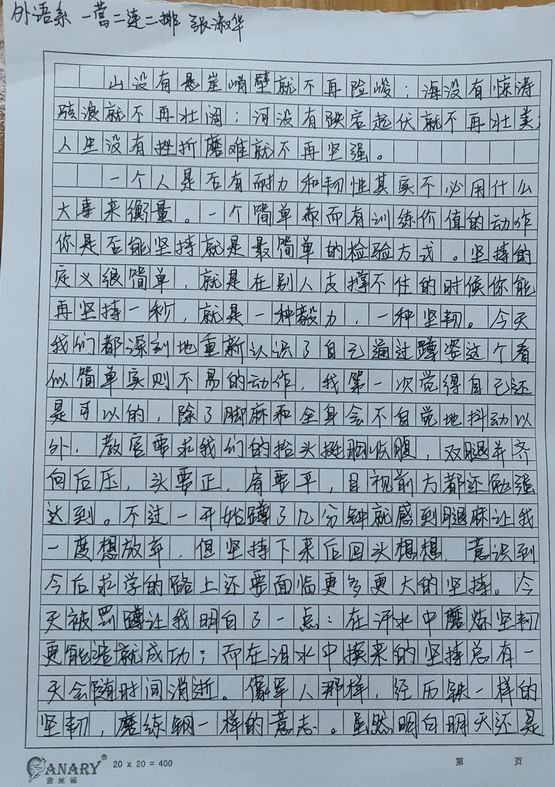 外语系 一营二连二排 张淑华
山没有悬崖峭壁就不再险峻；海没有惊涛
骇浪就不再壮阔；河没有跌宕起伏就不再壮美；
人生没有挫折磨难就不再坚强。
一个人是否有耐力和韧性其实不必用什么
大事来衡量。一个简单而有训练价值的动作
你是否能坚持就是最简单的检验方式。坚持的
定义很简单，就是在别人支撑不住的时候你能
再坚持一秒，就是一种毅力，一种坚韧。今天
我们都深刻地重新认识了自己通过蹲姿这个看
似简单实则不易的动作，我第一次觉得自己还
是可以的，除了脚麻和全身会不自觉地抖动以
外，教官要求我们的抬头挺胸收腹，双腿并齐
向后压，头要正，肩要平，目视前方都还勉强
达到。不过一开始蹲了几分钟就感到腿麻让我
一度想放弃，但坚持下来后回头想想，意识到
今后求学的路上还要面临更多更大的坚持。今
天被罚蹲让我明白了一点：在汗水中磨炼坚韧
更能造就成功；而在泪水中换来的坚持总有一
天会随时间消逝。像军人那样，经历铁一样的
坚韧，磨练钢一样的意志。虽然明白明天还是
CANARY 20 x 20 = 400 第 页
金丝雀